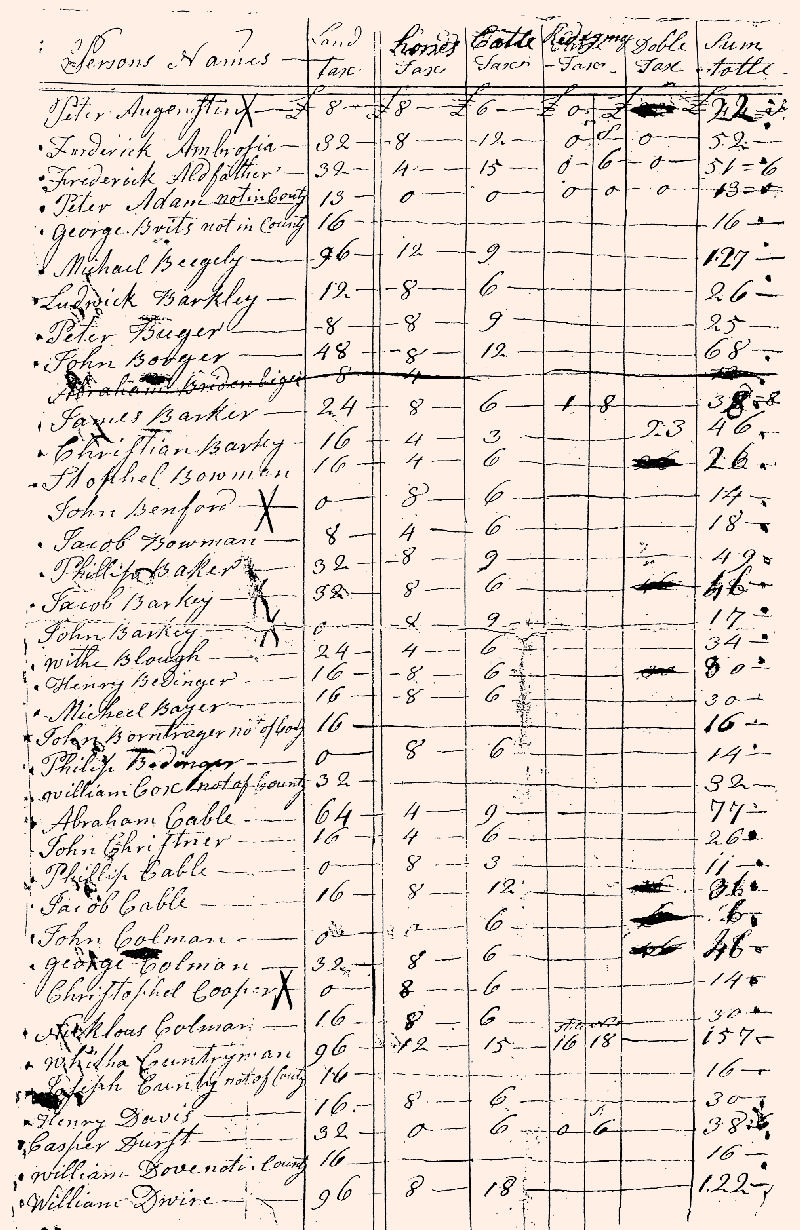 Persons Names Land Tax Horses Tax Catle Tax Tax Doble Tax Sum totle
Peter Augenstin X £ 8 £ 8 £ 6 £ 0 £ £ 22
Frederick Ambrosia 32 8 12 0 8 0 52
Frederick Aldfather 32 4 15 0 6 0 51 6
Peter Adam not in County 13 0 0 0 0 0 13
George Brits not in County 16 16
Michael Beegely 96 12 9 127
Ludwick Barkley 12 8 6 26
Peter Buger 8 8 9 25
John Borger 48 8 12 68
Abraham 8 4
James Barker 24 8 6 1 8 8
Christian Barky 16 4 3 23 46
Stophel Bowman 16 4 6 26
John Benford X 0 8 6 14
Jacob Bowman 8 4 6 18
Phillip Baker 32 8 9 49
Jacob Barkey 32 8 6 46
John Barkey X 0 8 9 17
withe Blough 24 4 6 34
Henry Bedinger 16 8 6 30
Micheel Bayer 16 8 6 30
John Borntrager not of County 16 16
Philip Bedinger 0 8 6 14
william Cox not of County 32 32
Abraham Cable 64 4 9 77
John Christner 16 4 6 26
Phillip Cable 0 8 3 11
Jacob Cable 16 8 12 36
John Colman 0 0 6 6
george Colman 32 8 6 46
Christophel Cooper X 0 8 6 14
Nicklous Colman 16 8 6 30
Countryman 96 12 15 16 18 157
Joseph not of County 16 16
Henry Davis 16 8 6 30
Casper Durst 32 0 6 0 6 38 6
william Dove not County 16 16
William Dwire 96 8 18 122